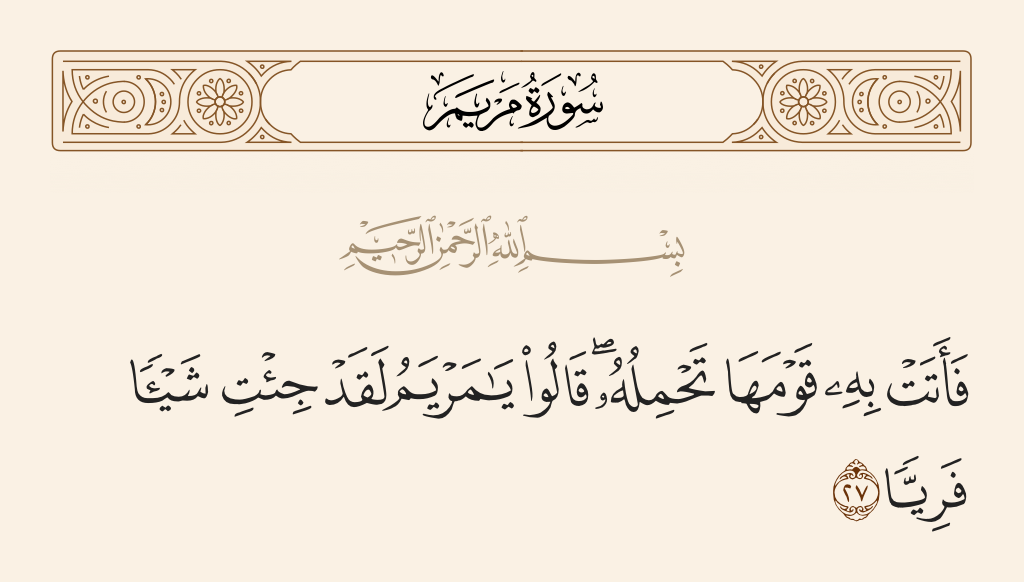 سُورَةُ مَرْيَمَ
بِسْمِ ٱللَّهِ ٱلرَّحْمَٰنِ ٱلرَّحِيمِ
فَأَتَتْ بِهِۦ قَوْمَهَا تَحْمِلُهُۥ ۖ قَالُوا۟ يَـٰمَرْيَمُ لَقَدْ جِئْتِ شَيْـًٔا
فَرِيًّا ٢٧